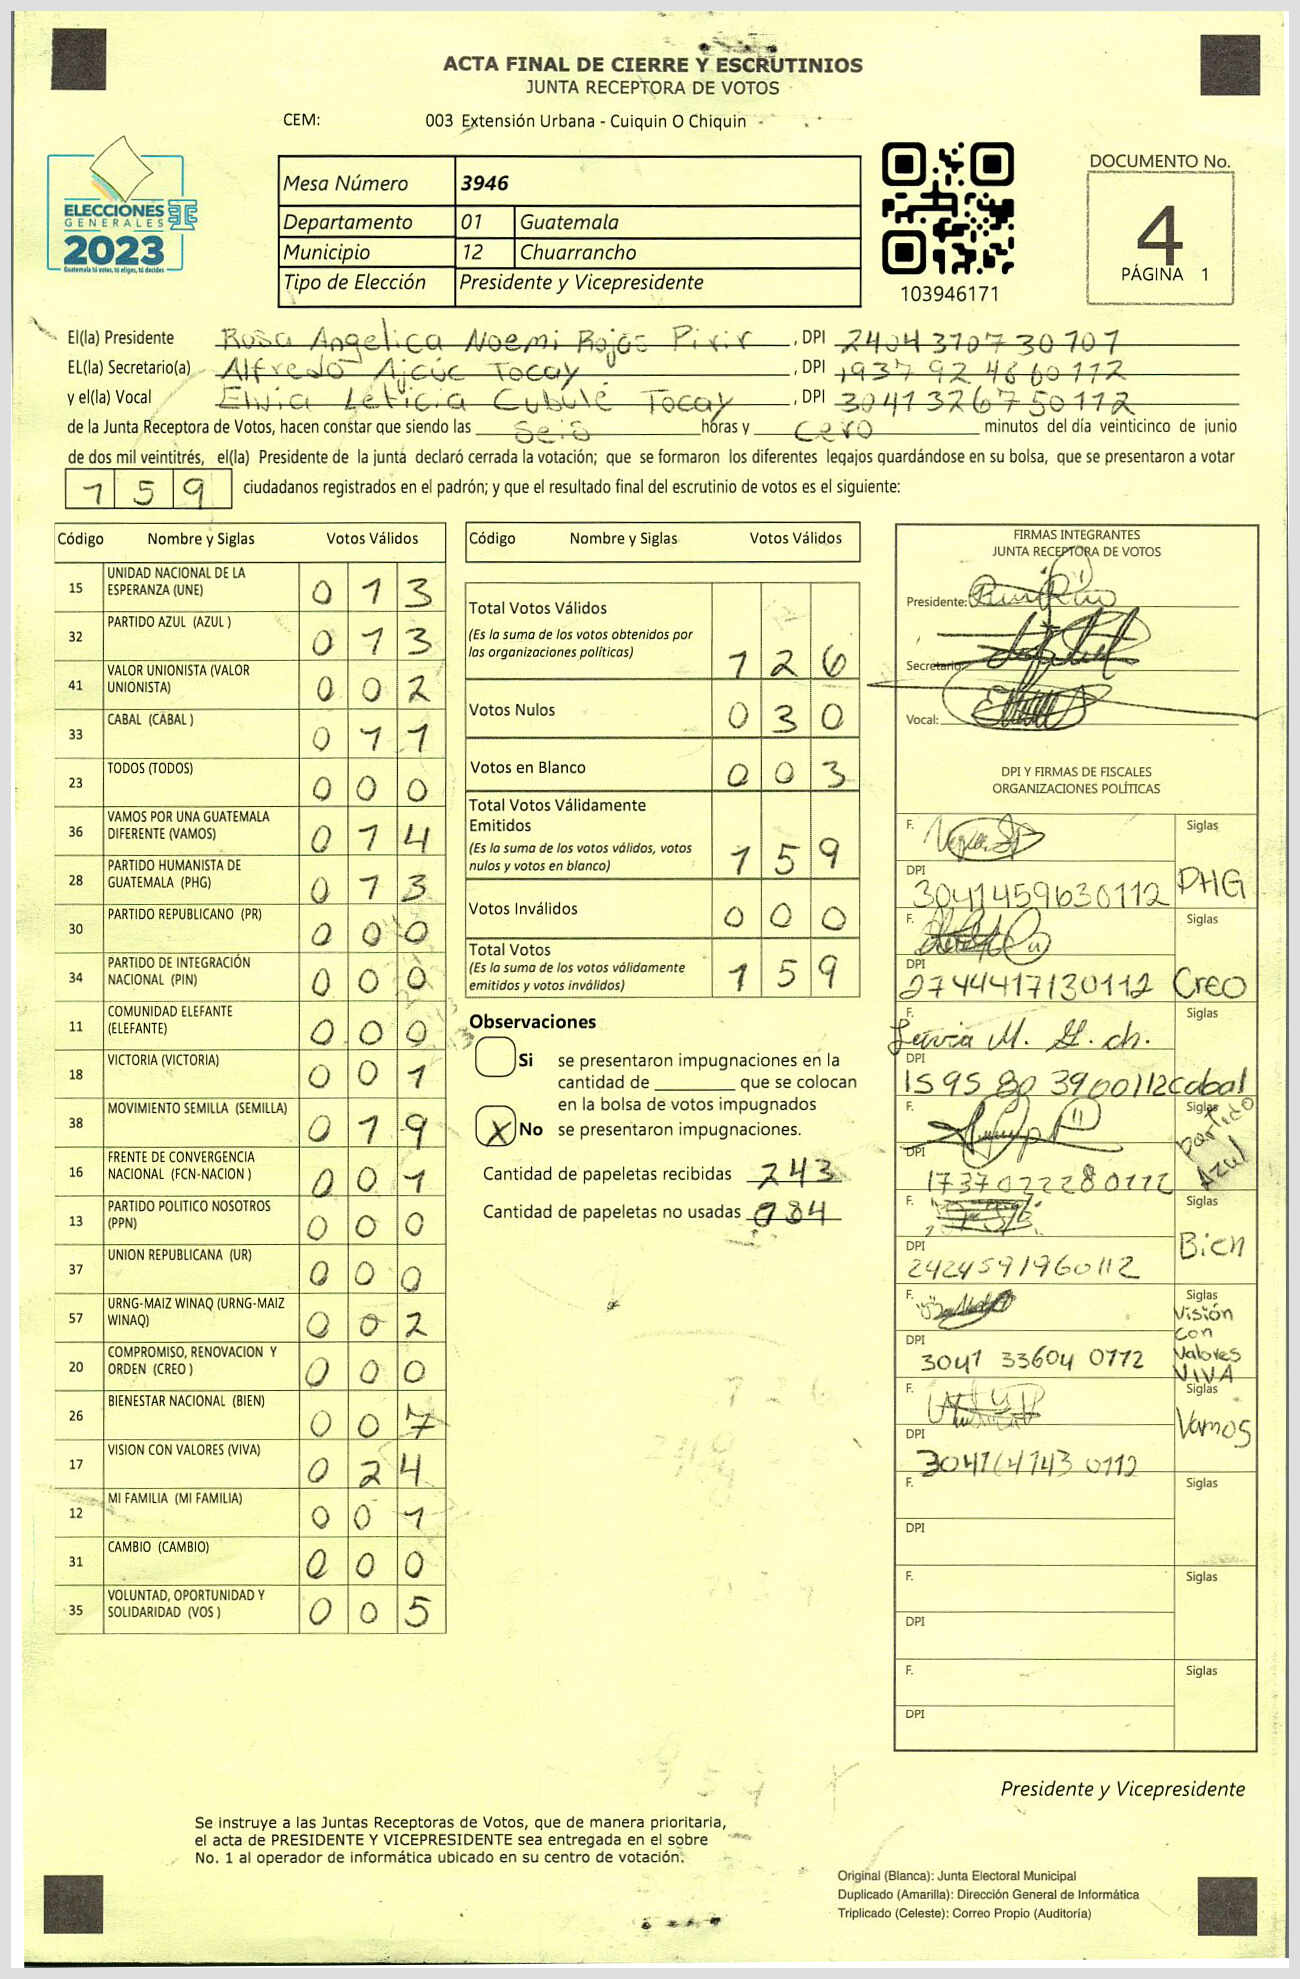 ACTA FINAL DE CIERRE Y ESCRUTINIOS
JUNTA RECEPTORA DE VOTOS
CEM: 003 Extensión Urbana - Cuiquin O Chiquin
ELECCIONES
GENERALES
2023
Guatemala tú votas, tú eliges, tú decides
Mesa Número 3946
Departamento 01 Guatemala
Municipio 12 Chuarrancho
Tipo de Elección Presidente y Vicepresidente
103946171
DOCUMENTO No.
4
PÁGINA 1
El(la) Presidente Rosa Angelica Noemi Rojas Pirir, DPI 2404370730101
EL(la) Secretario(a) Alfredo Ajcúc Tocay, DPI 1937924660112
y el(la) Vocal Elvia Leticia Cubulé Tocay, DPI 3041326750112
de la Junta Receptora de Votos, hacen constar que siendo las seis horas y cero minutos del día veinticinco de junio
de dos mil veintitrés, el(la) Presidente de la junta declaró cerrada la votación; que se formaron los diferentes legajos guardándose en su bolsa, que se presentaron a votar
159 ciudadanos registrados en el padrón; y que el resultado final del escrutinio de votos es el siguiente:
Código Nombre y Siglas Votos Válidos
15 UNIDAD NACIONAL DE LA ESPERANZA (UNE) 013
32 PARTIDO AZUL (AZUL ) 013
41 VALOR UNIONISTA (VALOR UNIONISTA) 002
33 CABAL (CABAL ) 011
23 TODOS (TODOS) 000
36 VAMOS POR UNA GUATEMALA DIFERENTE (VAMOS) 014
28 PARTIDO HUMANISTA DE GUATEMALA (PHG) 013
30 PARTIDO REPUBLICANO (PR) 000
34 PARTIDO DE INTEGRACIÓN NACIONAL (PIN) 000
11 COMUNIDAD ELEFANTE (ELEFANTE) 000
18 VICTORIA (VICTORIA) 001
38 MOVIMIENTO SEMILLA (SEMILLA) 019
16 FRENTE DE CONVERGENCIA NACIONAL (FCN-NACION ) 001
13 PARTIDO POLITICO NOSOTROS (PPN) 000
37 UNION REPUBLICANA (UR) 000
57 URNG-MAIZ WINAQ (URNG-MAIZ WINAQ) 002
20 COMPROMISO, RENOVACION Y ORDEN (CREO ) 000
26 BIENESTAR NACIONAL (BIEN) 007
17 VISION CON VALORES (VIVA) 024
12 MI FAMILIA (MI FAMILIA) 001
31 CAMBIO (CAMBIO) 000
35 VOLUNTAD, OPORTUNIDAD Y SOLIDARIDAD (VOS ) 005
Código Nombre y Siglas Votos Válidos
Total Votos Válidos
(Es la suma de los votos obtenidos por
las organizaciones políticas) 126
Votos Nulos 030
Votos en Blanco 003
Total Votos Válidamente
Emitidos
(Es la suma de los votos válidos, votos
nulos y votos en blanco) 159
Votos Inválidos 000
Total Votos
(Es la suma de los votos válidamente
emitidos y votos inválidos) 159
Observaciones
Si se presentaron impugnaciones en la
cantidad de ________ que se colocan
en la bolsa de votos impugnados
X No se presentaron impugnaciones.
Cantidad de papeletas recibidas 243
Cantidad de papeletas no usadas 084
FIRMAS INTEGRANTES
JUNTA RECEPTORA DE VOTOS
Presidente:
Secretario:
Vocal:
DPI Y FIRMAS DE FISCALES
ORGANIZACIONES POLÍTICAS
F. Siglas
DPI 3041459630112 PHG
F. Siglas
DPI 2744417130112 Creo
F. Siglas
DPI 1595803900112 Cabal
F. Siglas
DPI 1737022280112 Partido Azul
F. Siglas
DPI 2424591960112 Bien
F. Siglas
DPI 3041336040112 Visión con Valores VIVA
F. Siglas
DPI Vamos
F. Siglas
DPI
F. Siglas
DPI
F. Siglas
DPI
Presidente y Vicepresidente
Se instruye a las Juntas Receptoras de Votos, que de manera prioritaria,
el acta de PRESIDENTE Y VICEPRESIDENTE sea entregada en el sobre
No. 1 al operador de informática ubicado en su centro de votación.
Original (Blanca): Junta Electoral Municipal
Duplicado (Amarilla): Dirección General de Informática
Triplicado (Celeste): Correo Propio (Auditoría)